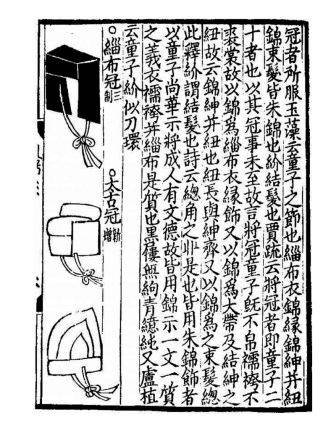 冠者所服玉藻云童子之節也緇布衣錦緣錦紳并紐
錦束髮皆朱錦也紒結髮也賈疏云將冠者即童子二
十者也以其冠事未至故言將冠童子旣不帛襦袴不
裘裳故以錦爲緇布衣緣飾又以錦爲大帶及結紳之
紐故云錦紳并紐也紐長與紳齊又以錦爲之束髮總
此釋紒謂結髮也詩云總角之丱是也皆用朱錦飾者
以童子尚華示將成人有文德故皆用錦示一文一質
之義衣襦袴并緇布是質也黑屨無絇青繶純又盧植
云童子紒似刀環
緇布冠三制
太古冠新增